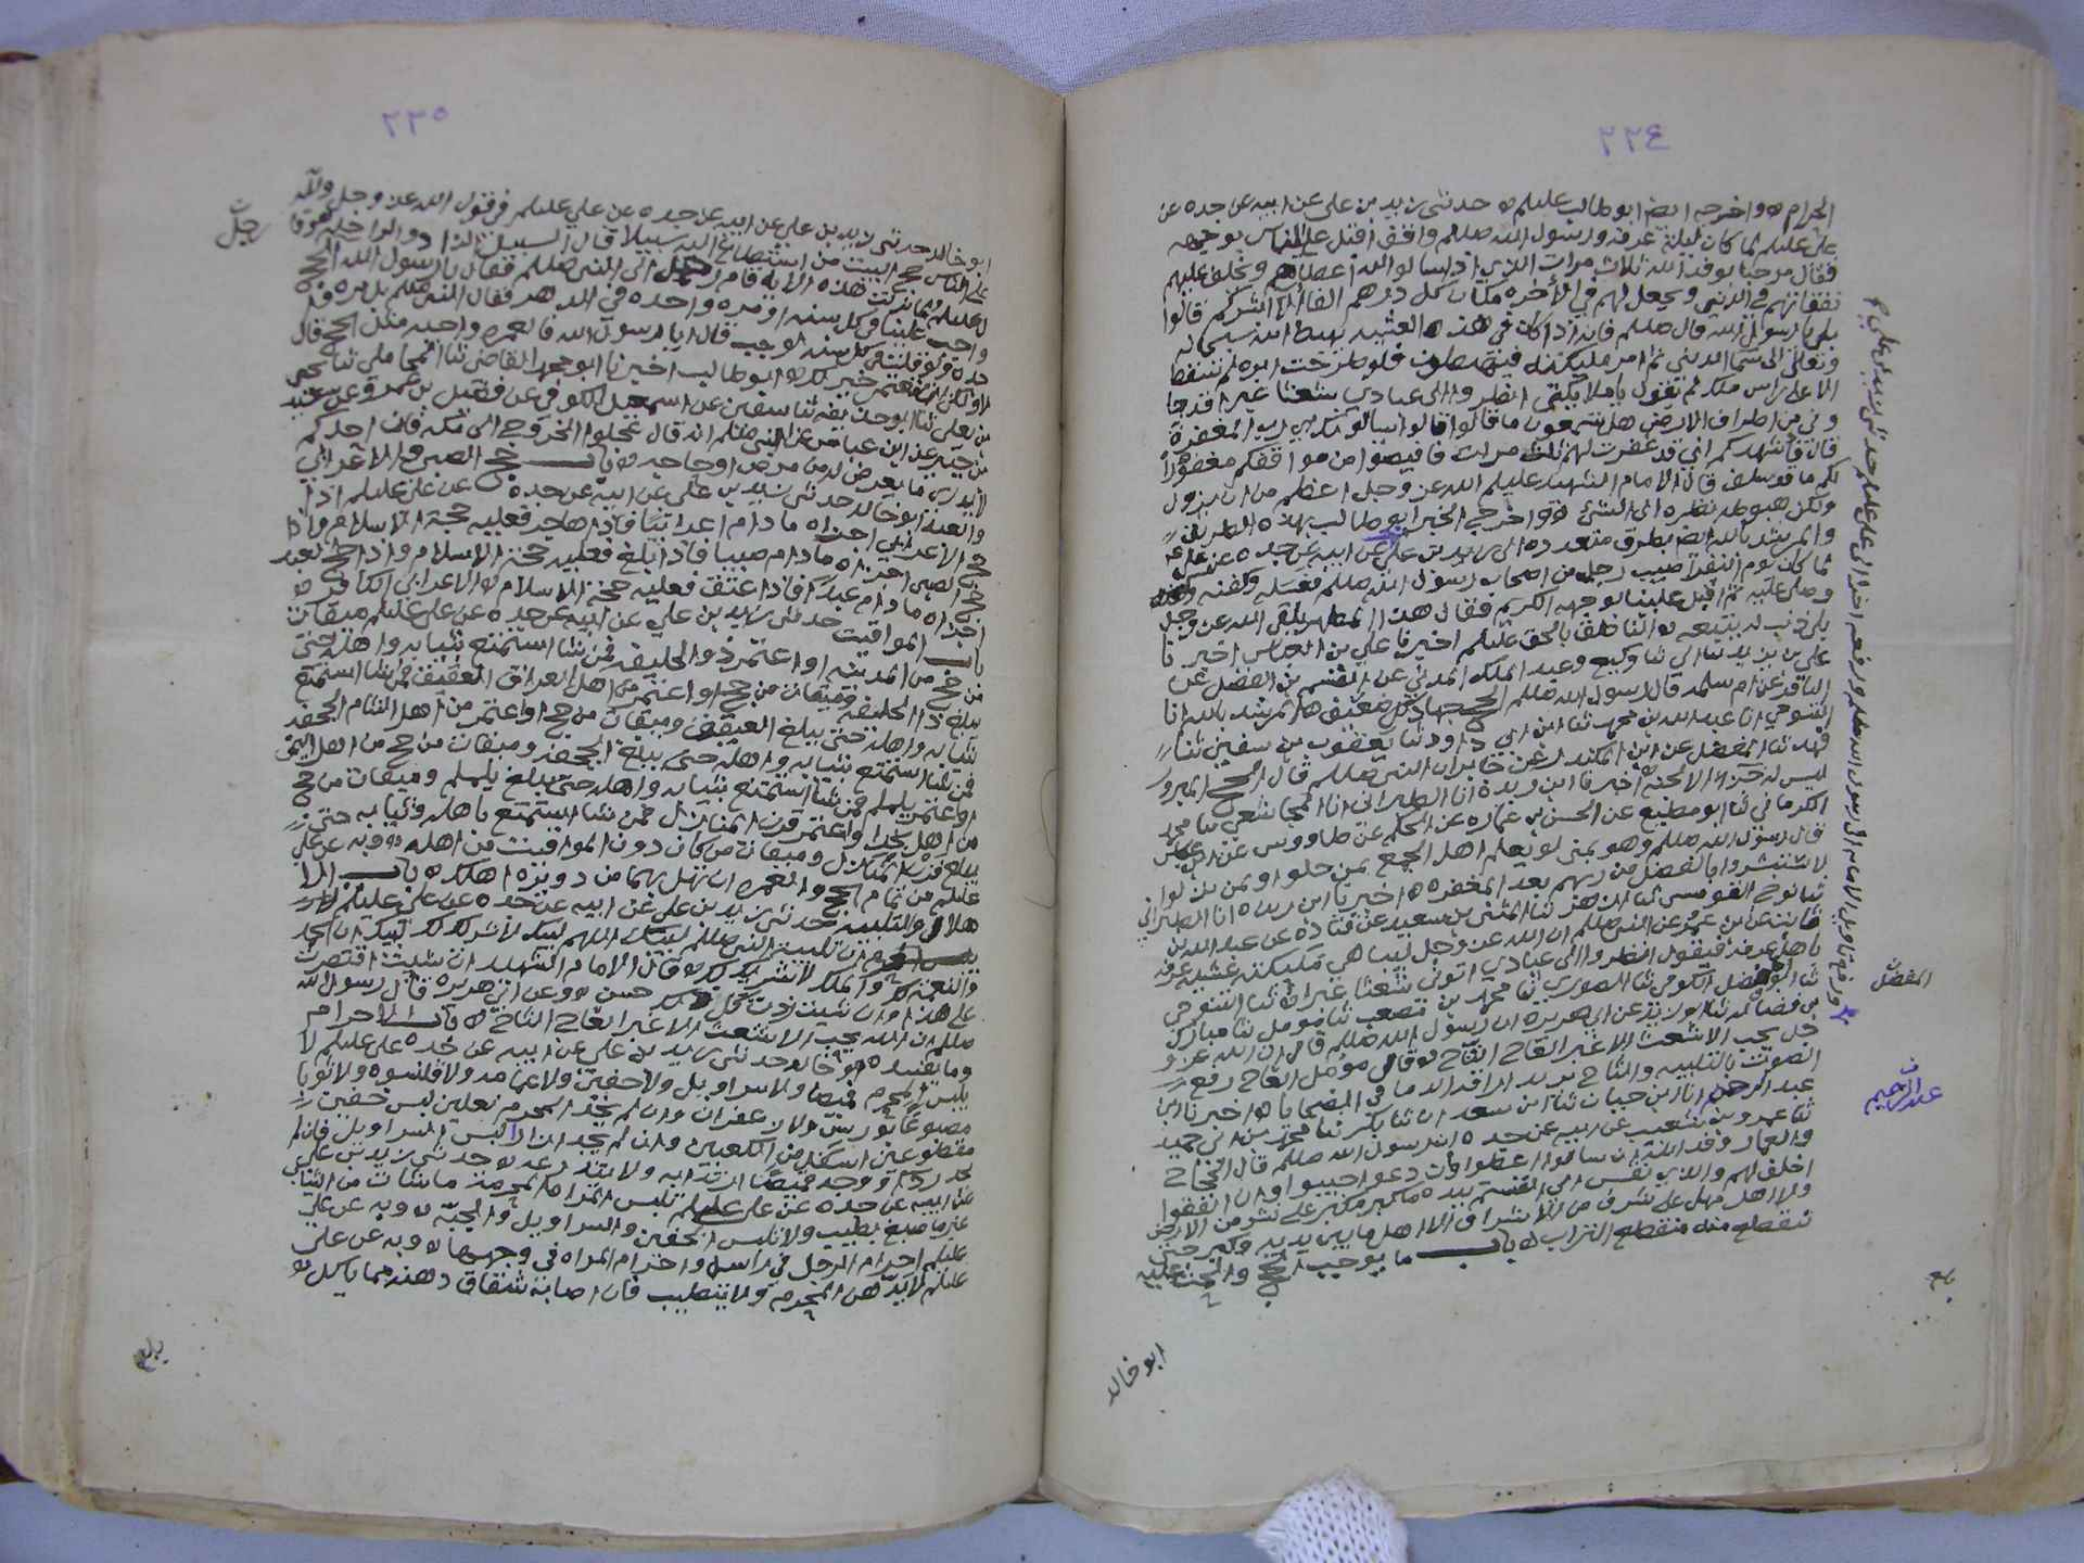 ٢٢٤
الحرام ه واخرجه ايضا ابو طالب عليلم ه حدثني زيد بن علي عن ابيه عن جده عن
علي عليلم لما كان ليلة عرفة ورسول الله صللم واقف اقبل على الناس بوجهه
فقال مرحبا بوفد الله ثلاث مرات الذين اذا سالوا الله اعطاهم ويخلف عليهم
نفقاتهم في الدنيى ويجعل لهم في الاخرة مكان كل درهم الفا الا ابشركم قالوا
بلى يا رسول الله قال صللم فانه اذا كان في هذه العشية هبط الله سبحانه
وتعالى الى سما الدنيى ثم امر مليكته فيهبطون فلو طرحت ابره لم تسقط
الا على راس ملك ثم يقول يا مليكتي انظروا الى عبادي شعثا غبرا قد جا
وني من اطراف الارض هل تسمعون ما قالوا قالوا يسالونك اي رب المغفرة
قال فاشهدكم اني قد غفرت لهم ثلاث مرات فافيضوا من موا قفكم مغفورا
لكم ما قد سلف قال الامام الشهيد عليلم الله عز وجل اعظم من ان يزول
ولكن هبوطه نظره الى الشي ه واخرج الخبر ابو طالب بهذه الطريق
والمرشد بالله ايضا بطرق متعدده الى زيد بن علي عن ابيه عن جده عن علي عم
لما كان يوم النفر اصيب رجل من اصحاب رسول الله صللم فغسله وكفنه
وصلى عليه ثم اقبل علينا بوجهه الكريم فقال هذا المطهر يلقى الله عز وجل
بلا ذنب له يتبعه ه الناطق بالحق عليلم اخبرنا علي بن العباس اخبرنا
علي بن يزيد ثنا ابي ثنا وكيع وعبد الملك المدني عن القسم بن الفضل عن
الباقر عن ام سلمه قال رسول الله صللم الحج جهاد كل ضعيف ه المرشد بالله انا
التنوخي انا عبد الله بن محمد ثنا ابن ابي داود ثنا يعقوب بن سفين ثنا
فهد ثنا المفضل عن ابن المنكدر عن جابر ان النبي صللم قال الحج المبرور
ليس له جزا الا الجنة ه اخبرنا ابن ريذة انا الطبراني انا المجاشعي ثنا محمد
الكرماني ثنا ابو مطيع عن الحسن بن عماره عن الحكم عن طاووس عن ابن عباس
قال رسول الله صللم وهو بمنى لو يعلم اهل الجمع بمن حلوا او بمن نزلوا
لاستبشروا بالفضل من ربهم بعد المغفرة ه اخبرنا ابن ريذه انا الطبراني
ثابت عن ابن عمر عن النبي صللم ان الله عز وجل ليباهي مليكته عشية عرفه
باهل عرفه فيقول انظروا الى عبادي اتوني شعثا غبرا
جل يحب الاشعث الاغبر العاج الثاج ه قال مؤمل العاج رفع
الصوت بالتلبيه والثاج يريد اراقة الدما في الضحايا ه اخبرنا ابن
عبد الرحمن انا ابن حبان ثنا ابن سعدان ثنا بكر ثنا محمد بن ابي حميد
ثنا عمرو بن شعيب عن ابيه عن جده ان رسول الله صللم قال الحجاج
والعمار وفد الله ان سالوا اعطوا وان دعوا اجيبوا وان انفقوا
اخلف لهم والذي نفس ابي القسم بيده ما كبر مكبر على نشز من الارض
ولا اهل مهل على شرف من الاشراف الا اهل ما بين يديه وكبر حتى
ينقطع منه منقطع التراب ه باب ما يوجب الحج والحث عليه
ابو خالد
المفضل
عبد الرحيم
بلغ
٢٢٥
ابو خالد حدثني زيد بن علي عن ابيه عن جده عن علي عليلم في قول الله عز وجل ولله
على الناس حج البيت من استطاع اليه سبيلا قال السبيل الزاد والراحله ه وقا
ل عليلم لما نزلت هذه الاية قام رجل الى النبي صللم فقال يا رسول الله الحج
واجب علينا في كل سنه او مره واحده في الدهر فقال النبي صللم بل مره وا
حده ولو قلت في كل سنه لوجب قال يا رسول الله فالعمره واجبه مثل الحج قال
لا ولكن ان تعتمر خير لك ه ابو طالب اخبرنا ابو محمد القاضي ثنا المحاملي ثنا يحيى
بن يعلى ثنا ابو حذيفه ثنا سفين عن اسمعيل الكوفي عن فضيل بن عمرو عن سعيد
بن جبير عن ابن عباس عن النبي صللم انه قال عجلوا الخروج الى مكه فان احدكم
لا يدري ما يعرض له من مرض او حاجه ه باب حج الصبي والاعرابي
والعبد ابو خالد حدثني زيد بن علي عن ابيه عن جده عن علي عليلم اذا
حج الاعرابي اجزاه ما دام اعرابيا فاذا هاجر فعليه حجة الاسلام واذا
حج الصبي اجزاه ما دام صبيا فاذا بلغ فعليه حجة الاسلام واذا حج العبد
اجزاه ما دام عبدا فاذا اعتق فعليه حجة الاسلام ه الاعرابي الكافر ه
باب المواقيت حدثني زيد بن علي عن ابيه عن جده عن علي عليلم ميقات
من حج من المدينه او اعتمر ذو الحليفه فمن شا استمتع بثيابه واهله حتى
يبلغ ذا الحليفه وميقات من حج او اعتمر من اهل العراق العقيق فمن شا استمتع
بثيابه واهله حتى يبلغ العقيق وميقات من حج او اعتمر من اهل الشام الجحفه
فمن شا استمتع بثيابه واهله حتى يبلغ الجحفه وميقات من حج من اهل اليمن
او اعتمر يلملم فمن شا استمتع بثيابه واهله حتى يبلغ يلملم وميقات من حج
من اهل نجد او اعتمر قرن المنازل فمن شا استمتع باهله وثيابه حتى
يبلغ قرن المنازل وميقات من كان دون المواقيت من اهله دويره وبه عن علي
عليلم من تمام الحج والعمره ان تهل بهما من دويره اهلك ه باب الا
هلال والتلبيه حدثني زيد بن علي عن ابيه عن جده عن علي عليلم
ان تلبية النبي صللم لبيك اللهم لبيك لا شريك لك لبيك ان الحمد
والنعمة لك والملك لا شريك لك ه قال الامام الشهيد ان شيت اقتصرت
على هذا وان شيت زدت كل ذلك حسن ه وعن ابي هريره قال رسول الله
صللم ان الله يحب الاشعث الاغبر العاج الثاج ه باب الاحرام
وما يفسده ابو خالد حدثني زيد بن علي عن ابيه عن جده عن علي عليلم لا
يلبس المحرم قميصا ولا سراويل ولا خفين ولا عمامه ولا قلنسوه ولا ثوبا
مصبوغا بورس ولا زعفران وان لم يجد المحرم نعلين لبس خفين
مقطوعين اسفل من الكعبين وان لم يجد ازارا لبس السراويل فان لم
يجد ردا ووجد قميصا ارتدا به ولا يتدرعه ه حدثني زيد بن علي
عن ابيه عن جده عن علي عليلم تلبس المراه المحرمه ما شات من الثياب
غير ما صبغ بطيب ولا تلبس الخفين والسراويل والجبه ه وبه عن علي
عليلم احرام الرجل في راسه واحرام المراه في وجهها ه وبه عن علي
عليلم لا يدهن المحرم ولا يتطيب فان اصابه شقاق دهنه مما ياكل ه
رجل
بلغ